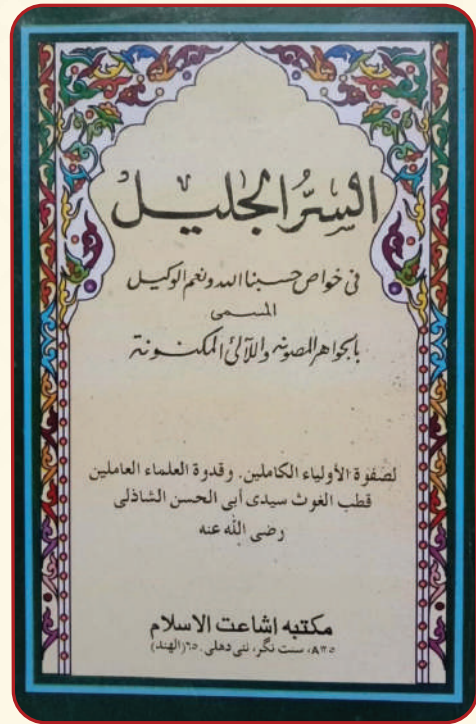 السرُّ الجليل
فى خواص حسبنا الله ونعم الوكيل
المسمى
بالجواهر المصونه واللآلئ المكنونة
لصفوة الأولياء الكاملين. وقدوة العلماء العاملين
قطب الغوث سيدى أبى الحسن الشاذلى
رضى الله عنه
مكتبه اشاعت الاسلام
سنت نگر، نئى دهلى ٦٥ (الهند)